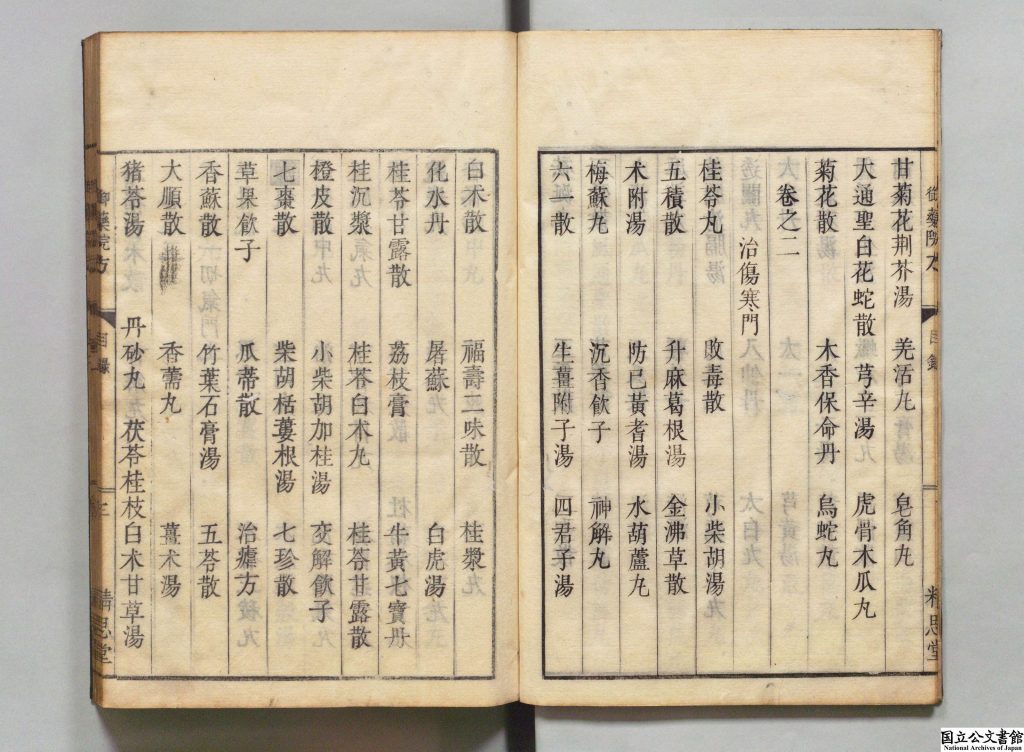 甘菊花荆芥湯　羌活丸　皂角丸
大通聖白花蛇散　芎辛湯　虎骨木瓜丸
菊花散　木香保命丹　烏蛇丸
卷之二
治傷寒門
桂苓丸　敗毒散　小柴胡湯
五積散　升麻葛根湯　金沸草散
术附湯　防已黃耆湯　水葫蘆丸
梅蘇丸　沉香飲子　神解丸
六一散　生薑附子湯　四君子湯
白术散　福壽二味散　桂漿
化水丹　屠蘇　白虎湯
桂苓甘露散　荔枝膏　牛黃七寶丹
桂沉漿　桂苓白术丸　桂苓甘露散
橙皮散　小柴胡加桂湯　交解飲子
七棗散　柴胡栝蔞根湯　七珍散
草果飲子　瓜蒂散　治瘧方
香蘇散　竹葉石膏湯　五苓散
大順散　香薷丸　薑术湯
猪苓湯　丹砂丸　茯苓桂枝白术甘草湯
御藥院方　目錄　精思堂
御藥院方　目錄　二　精思堂
国立公文書館
National Archives of Japan